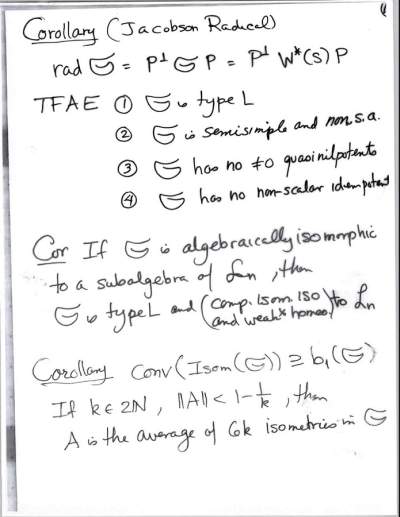 Corollary (Jacobson Radical)
rad 𝔖 = P⊥ 𝔖 P = P⊥ W*(S) P
TFAE ① 𝔖 is type L
② 𝔖 is semisimple and non s.a.
③ 𝔖 has no ≠0 quasinilpotents
④ 𝔖 has no non-scalar idempotent
Cor If 𝔖 is algebraically isomorphic
to a subalgebra of ℒn, then
𝔖 is type L and (comp. isom. iso and weak* homeo.) to ℒn
Corollary Conv(Isom(𝔖)) ⊇ b₁(𝔖)
If k ∈ 2ℕ, ||A|| < 1 - 1/k, then
A is the average of 6k isometries in 𝔖